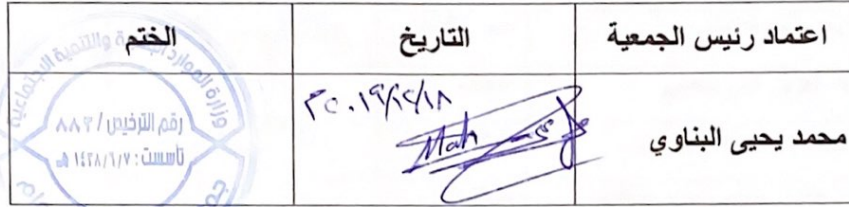 اعتماد رئيس الجمعية التاريخ الختم
محمد يحيى البناوي
وزارة الموارد البشرية والتنمية الاجتماعية
رقم الترخيص / ٨٨٢
تأسست : ١٤٣٨/٦/٧ هـ